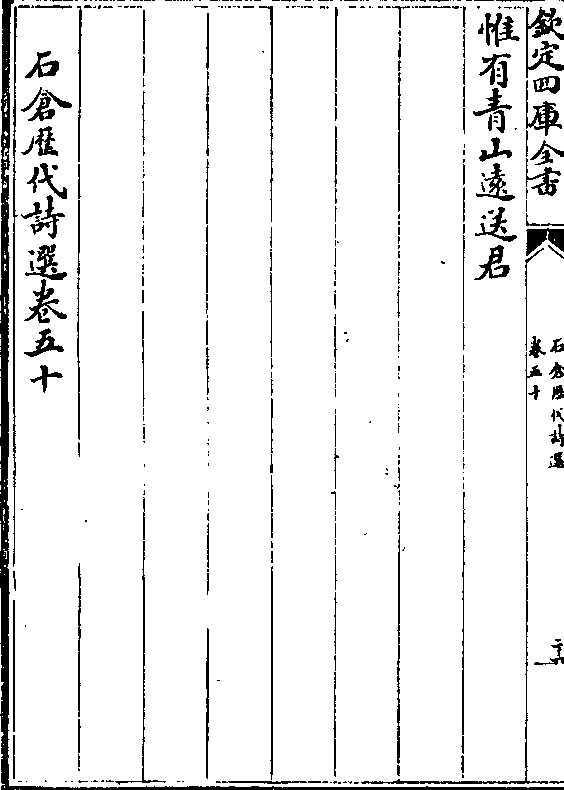 欽定四庫全書
石倉歴代詩選
卷五十
惟有青山遠送君
石倉歴代詩選卷五十